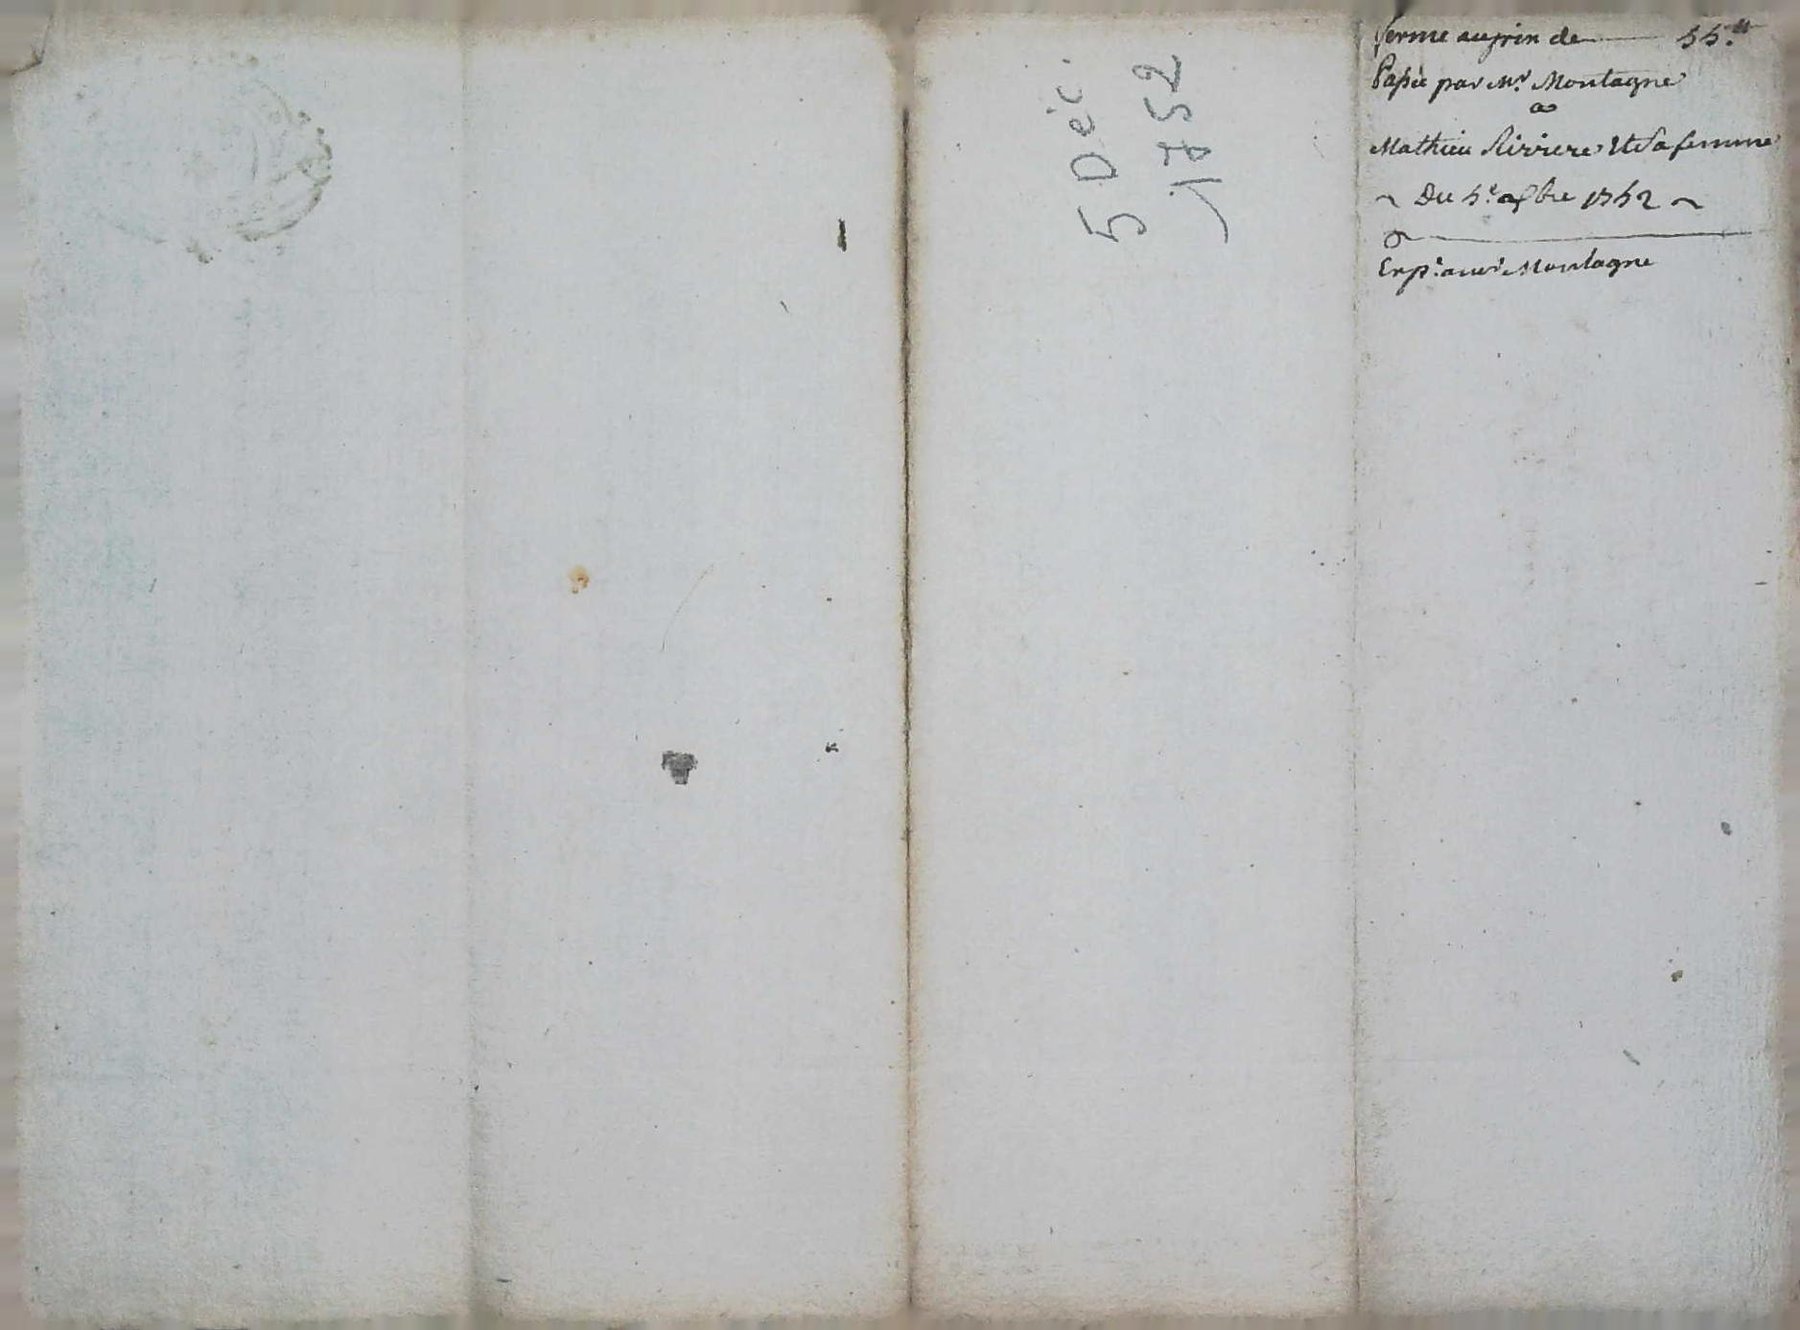 5 Déc.
1752
ferme au prix de — 55.ᵗᵗ
Passée par Mʳ. Montagne
a
Mathieu Rivviere Et Sa femme
~ Du 5.ᵉ Xbre 1752 ~
Exp.ᵉ au sʳ Montagne